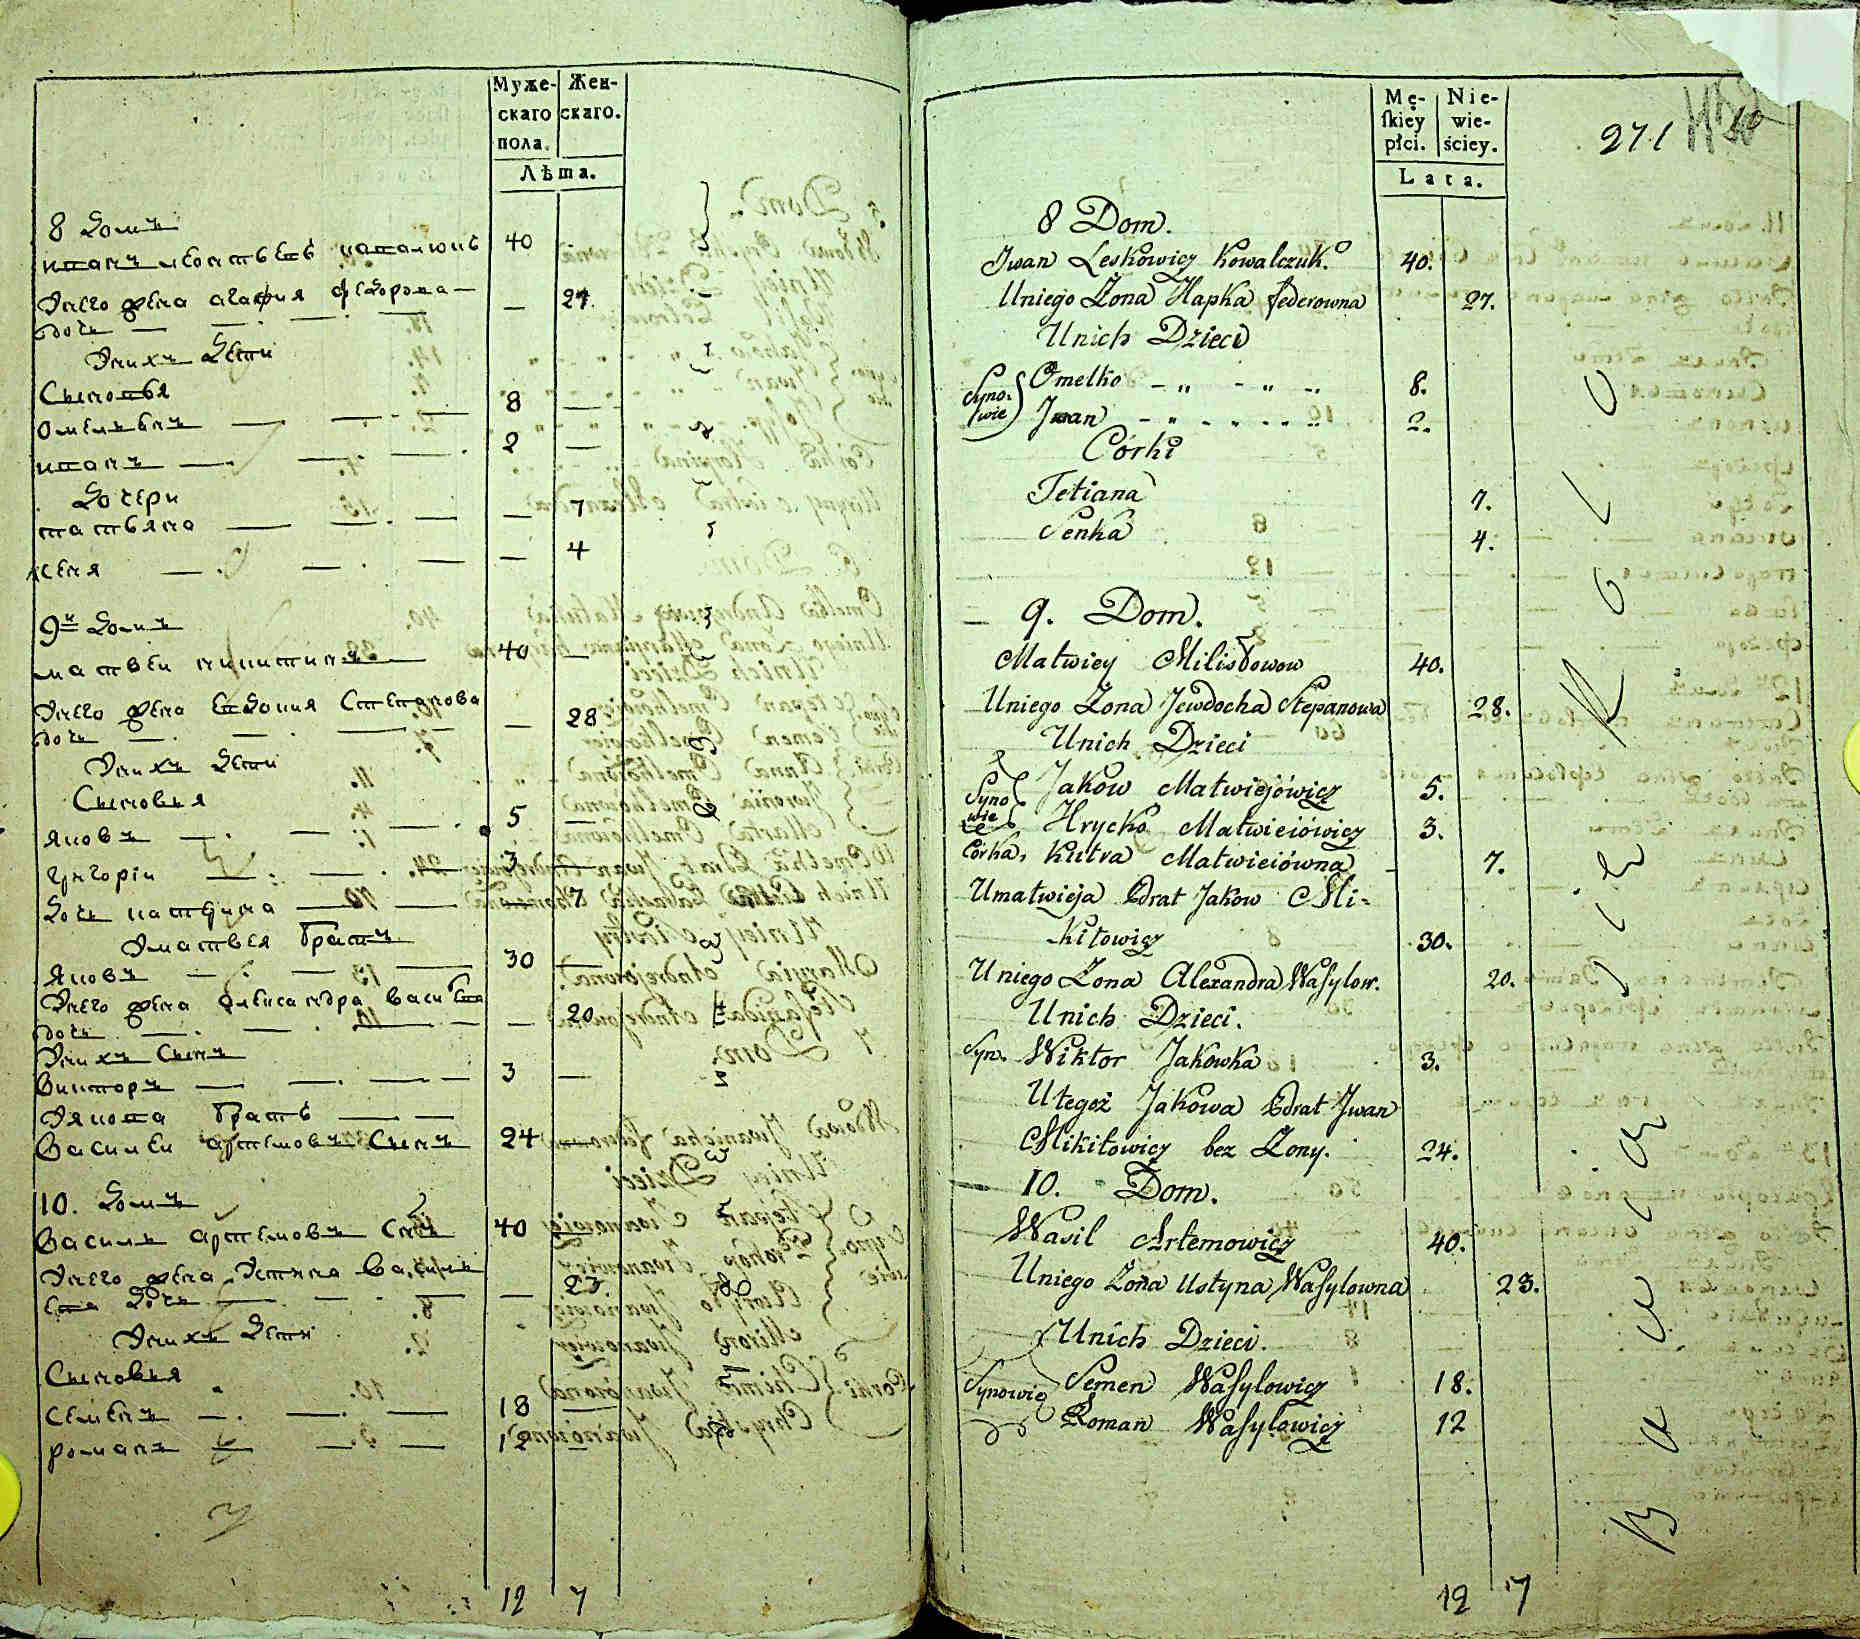 Муже-
скаго
пола.
Жен-
скаго.
Лѣта.
8 домъ
иванъ 40
Унего жена агафия федорова 27.
дочь
Унихъ дети
Сыновья
омельянъ 8
иванъ 2
Дочери
татьяна 7
ксеня 4
9й домъ
матвеи никитинъ 40
Унего жена евдокия Степанова 28
дочь
Унихъ дети
Сыновья
яковъ 5
григорiи 3
дочь катерина 7
Уматвея братъ
яковъ 30
Унего жена александра василева
дочь 20
Унихъ Сынъ
викторъ 3
Уякова братъ
василеи артемовъ Сынъ 24
10. домъ
василь артемовъ Сынъ 40
Унего жена Устина василь
ева дочь 23.
Унихъ дети
Сыновья
семенъ 18
романъ 12
12 7
Mę-
skiey
płci.
Nie-
wie-
ściey.
Lata.
271
8 Dom.
Jwan Leskowicz Kowalczuk. 40.
Uniego Zona Hapka Federowna 27.
Unich Dzieci
Syno-
wie
Omelko 8.
Jwan 2.
Córki
Tetiana 7.
Senka 4.
9. Dom.
Matwiey 40.
Uniego Zona Jewdocha Stepanowa 28.
Unich Dzieci
Syno
wie
Jakow Matwiejówicz 5.
Hrycko Matwieiówicz 3.
Córka, Kutra Matwieiówna 7.
Umatwieja Brat Jakow Mi-
kitowicz 30.
Uniego Zona Alexandra Wasylow. 20.
Unich Dzieci.
Syn. Wiktor Jakowka 3.
Utegoż Jakowa Brat Jwan
Mikitowicz bez Zony. 24.
10. Dom.
Wasil Artemowicz 40.
Uniego Zona Ustyna Wasylowna 23.
Unich Dzieci.
Synowie
Semen Wasylowicz 18.
Roman Wasylowicz 12
12 7